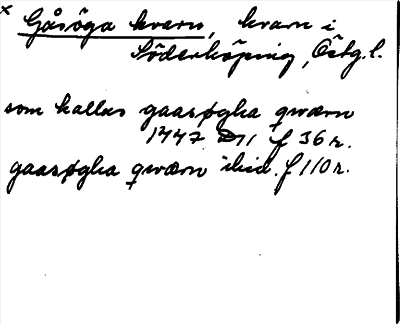 × Gåsöga kvarn, kvarn i
Söderköping, Östg.l.
som kallas gaasøgha qwærn
1447 D11 f 36 r.
gaasøgha qwærn ibid. f 110 r.